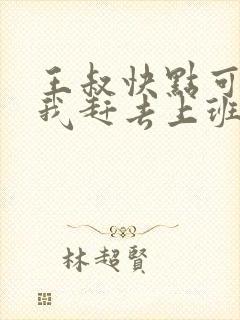 王叔快點可
我赶去上班
林超賢